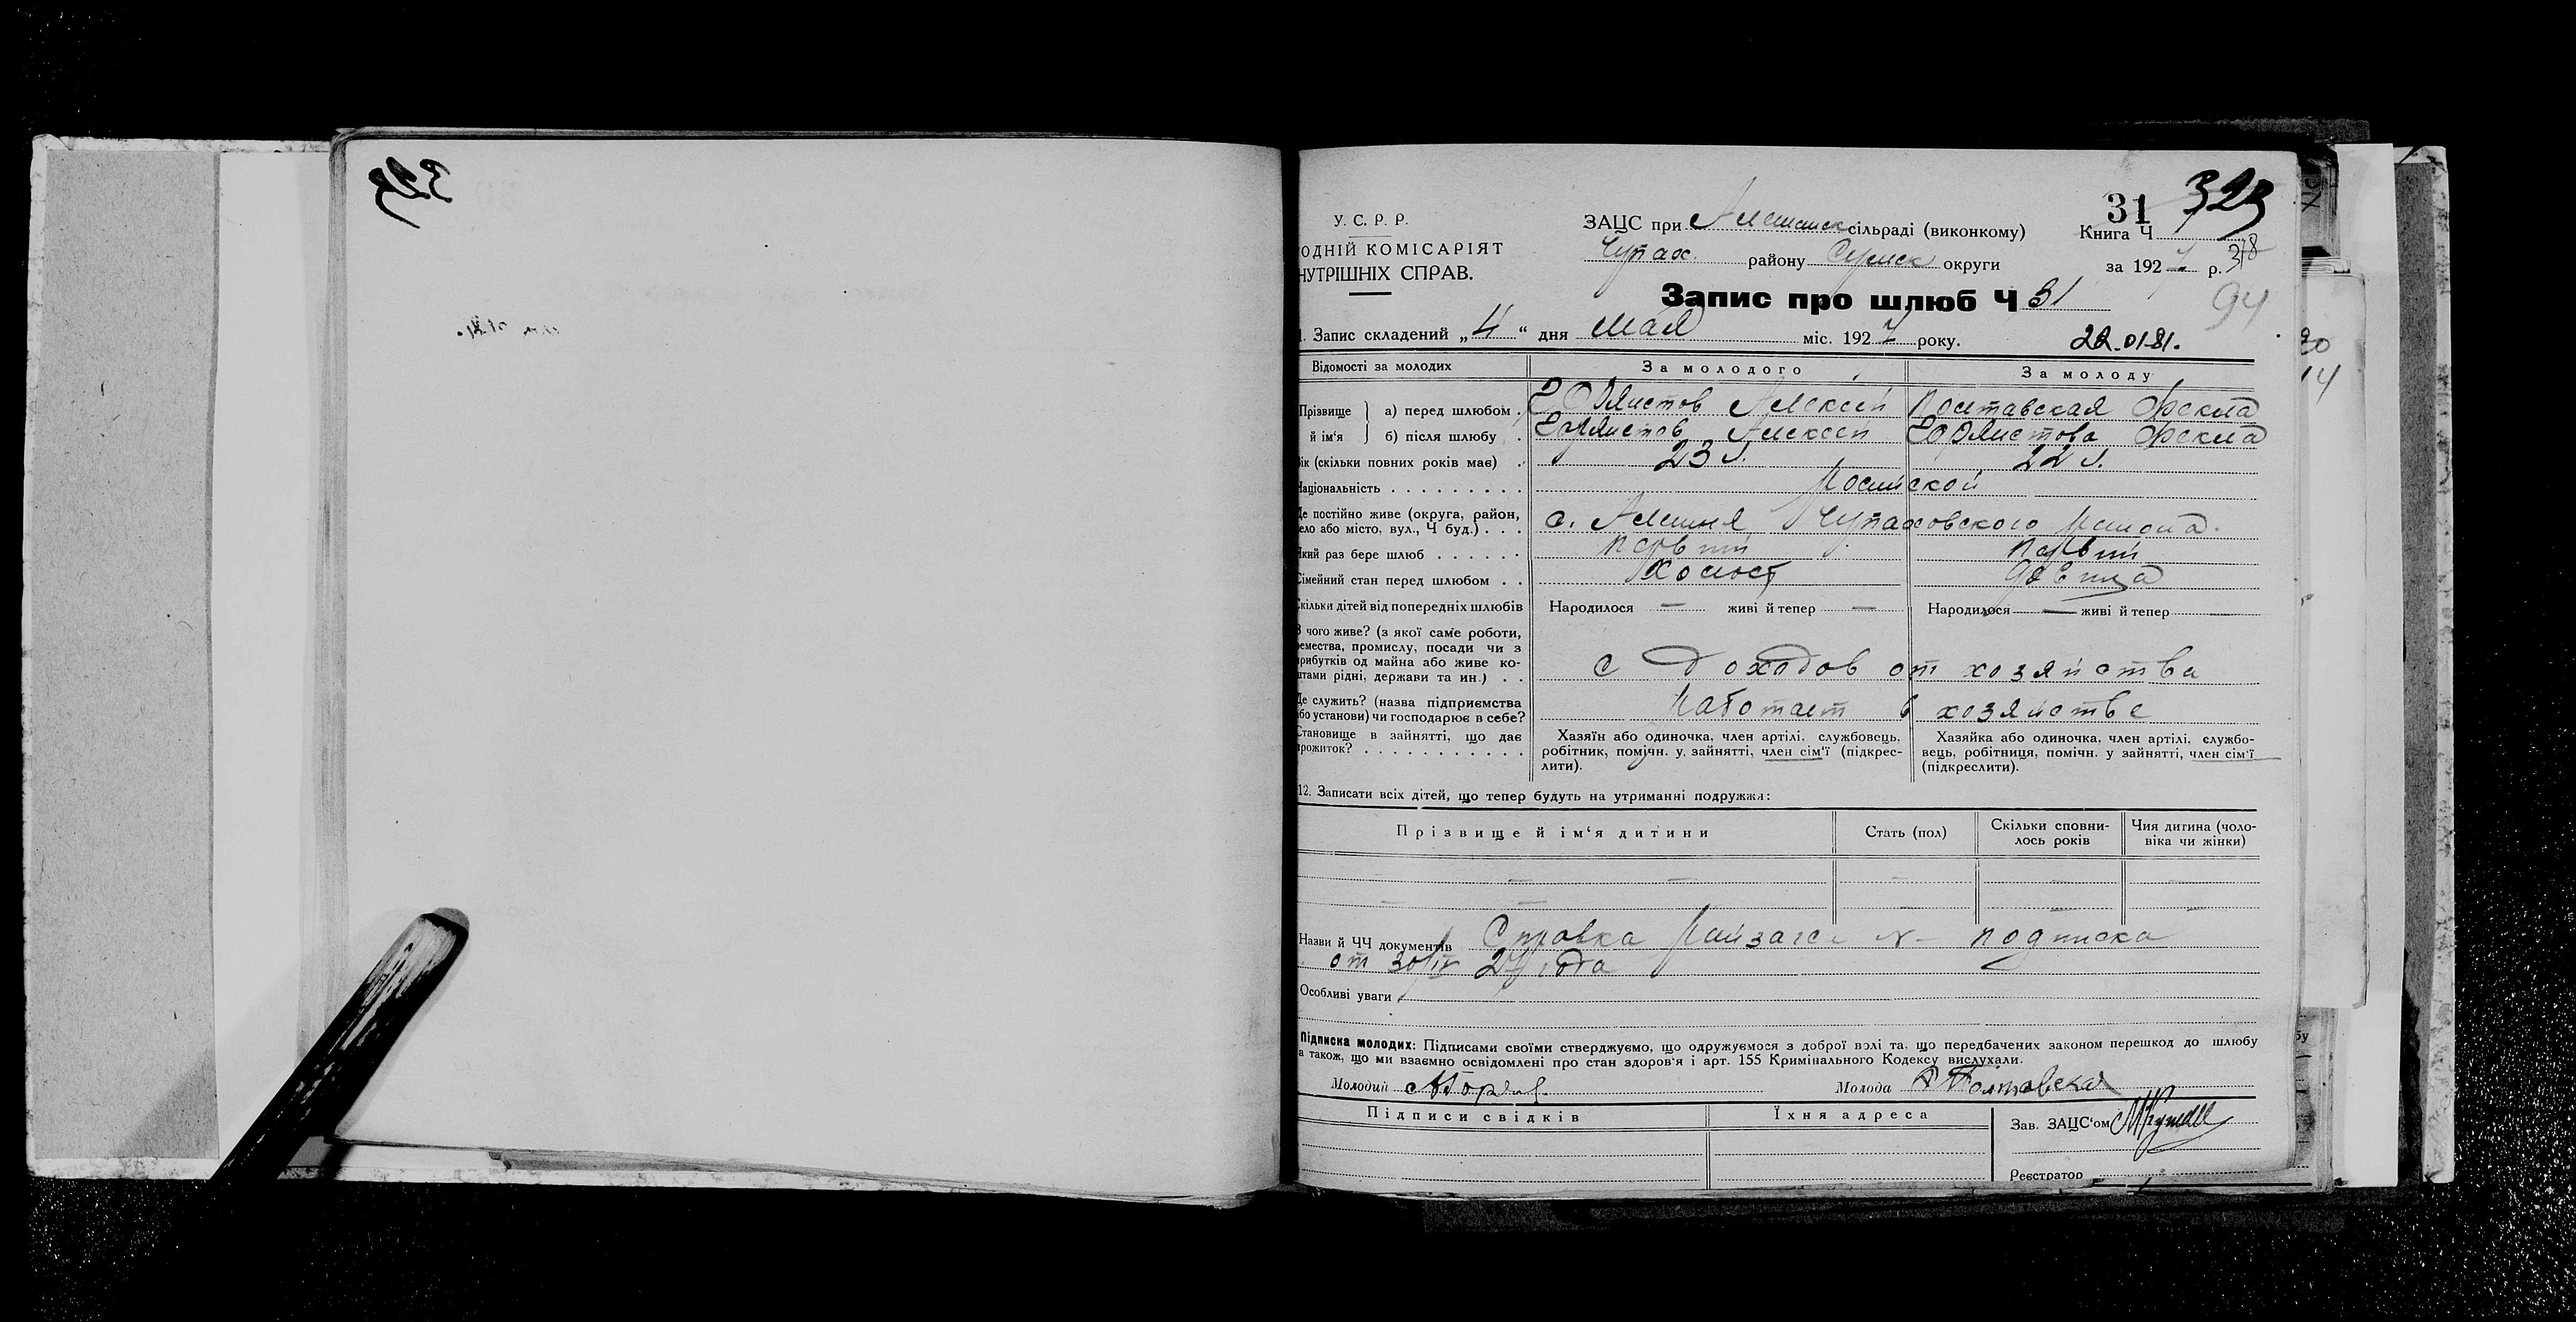 329
У. С. Р. Р.
ОДНІЙ КОМІСАРІЯТ
НУТРІШНІХ СПРАВ.
31 329
ЗАЦС при Алешанск сільраді (виконкому)
Книга Ч
Чупах. району Сумск округи
за 1927 р. 318
Запис про шлюб Ч 31
94
1. Запис складений „4“ дня мая міс. 1927 року.
22.01.81.
Відомості за молодих
За молодого
За молоду
Прізвище й ім'я
а) перед шлюбом
Алексей
Полтавская Фекла
б) після шлюбу
Алексей
Фекла
ік (скільки повних років має)
23 г.
22 г.
Національність
Росийской
Де постійно живе (округа, район,
село або місто, вул., Ч буд.)
с. Алешня Чупаховского района.
Який раз бере шлюб
первий
первий
Сімейний стан перед шлюбом
холост
девица
Скільки дітей від попередніх шлюбів
Народилося — живі й тепер —
Народилося — живі й тепер
З чого живе? (з якої саме роботи,
ремества, промислу, посади чи з
прибутків од майна або живе ко-
штами рідні, держави та ин.)
с доходов от хозяйства
Де служить? (назва підприємства
або установи) чи господарює в себе?
работает в хозяйстве
Становище в зайнятті, що дає
прожиток?
Хазяїн або одиночка, член артілі, службовець,
робітник, помічн. у зайнятті, член сім'ї (підкрес-
лити).
Хазяйка або одиночка, член артілі, службо-
вець, робітниця, помічн. у зайнятті, член сім'ї
(підкреслити).
12. Записати всіх дітей, що тепер будуть на утриманні подружжя:
Прізвище й ім'я дитини
Стать (пол)
Скільки сповни-
лось років
Чия дитина (чоло-
віка чи жінки)
Назви й ЧЧ документів Справка Райзагса № — подписка
от 30/IV 27 года
Особливі уваги
Підписка молодих: Підписами своїми стверджуємо, що одружуємося з доброї волі та, що передбачених законом перешкод до шлюбу
а також, що ми взаємно освідомлені про стан здоров'я і арт. 155 Кримінального Кодексу вислухали.
Молодий
Молода Полтавская
Підписи свідків
Їхня адреса
Зав. ЗАЦС'ом
Реєстратор